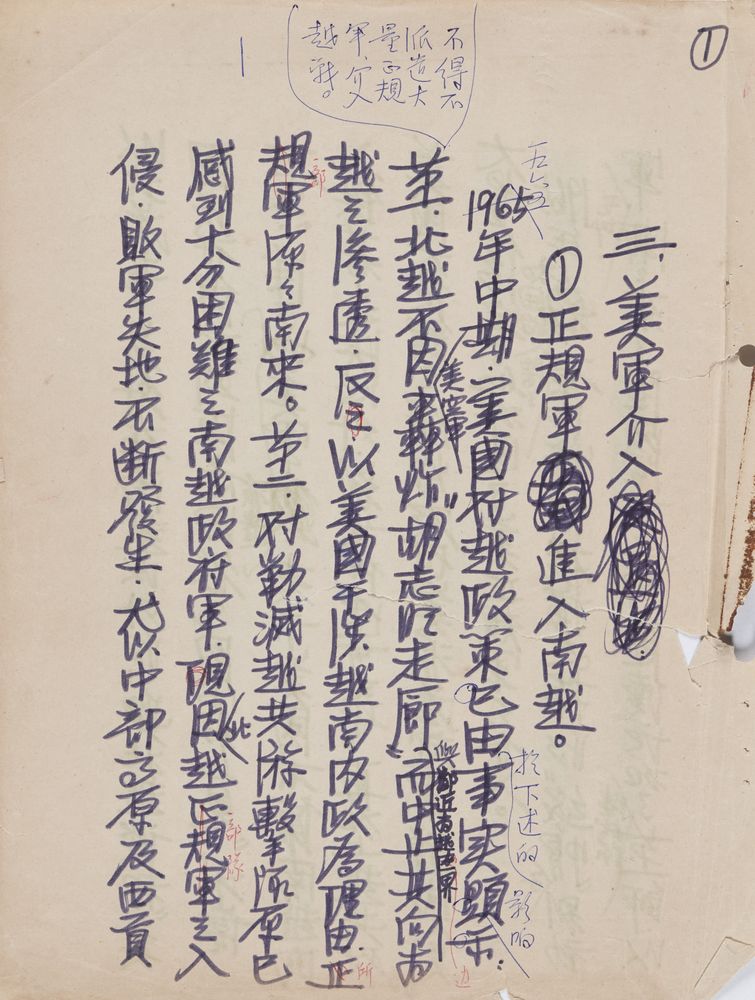 ①
三、美軍介入
①正規軍進入南越。
1965年中期，美國对越政策已由事实顯示：
一九六五
於下述的影响
第一，北越不因轟炸“胡志明走廊”而中止其向南
美空軍
與鄰近南越边界
边
越之滲透，反之以美國干涉越南内政為理由，正
所
規軍源源南來。第二，对勦滅越共游擊隊原已
部
感到十分困難之南越政府軍，現因越正規軍之入
北
部隊
侵，敗軍失地，不断發生，尤以中部高原及西貢
不得不
派遣大
量正規
軍介入
越戰。